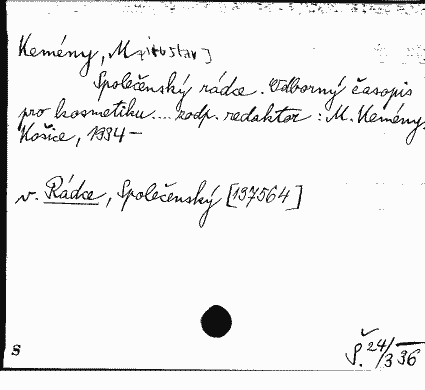 Kemény, M[iroslav]
Společenský rádce. Odborný časopis
pro kosmetiku.... zodp. redaktor: M. Kemény.
Košice, 1934-
v. Rádce, Společenský [197564]
s
Š. 24/3 36